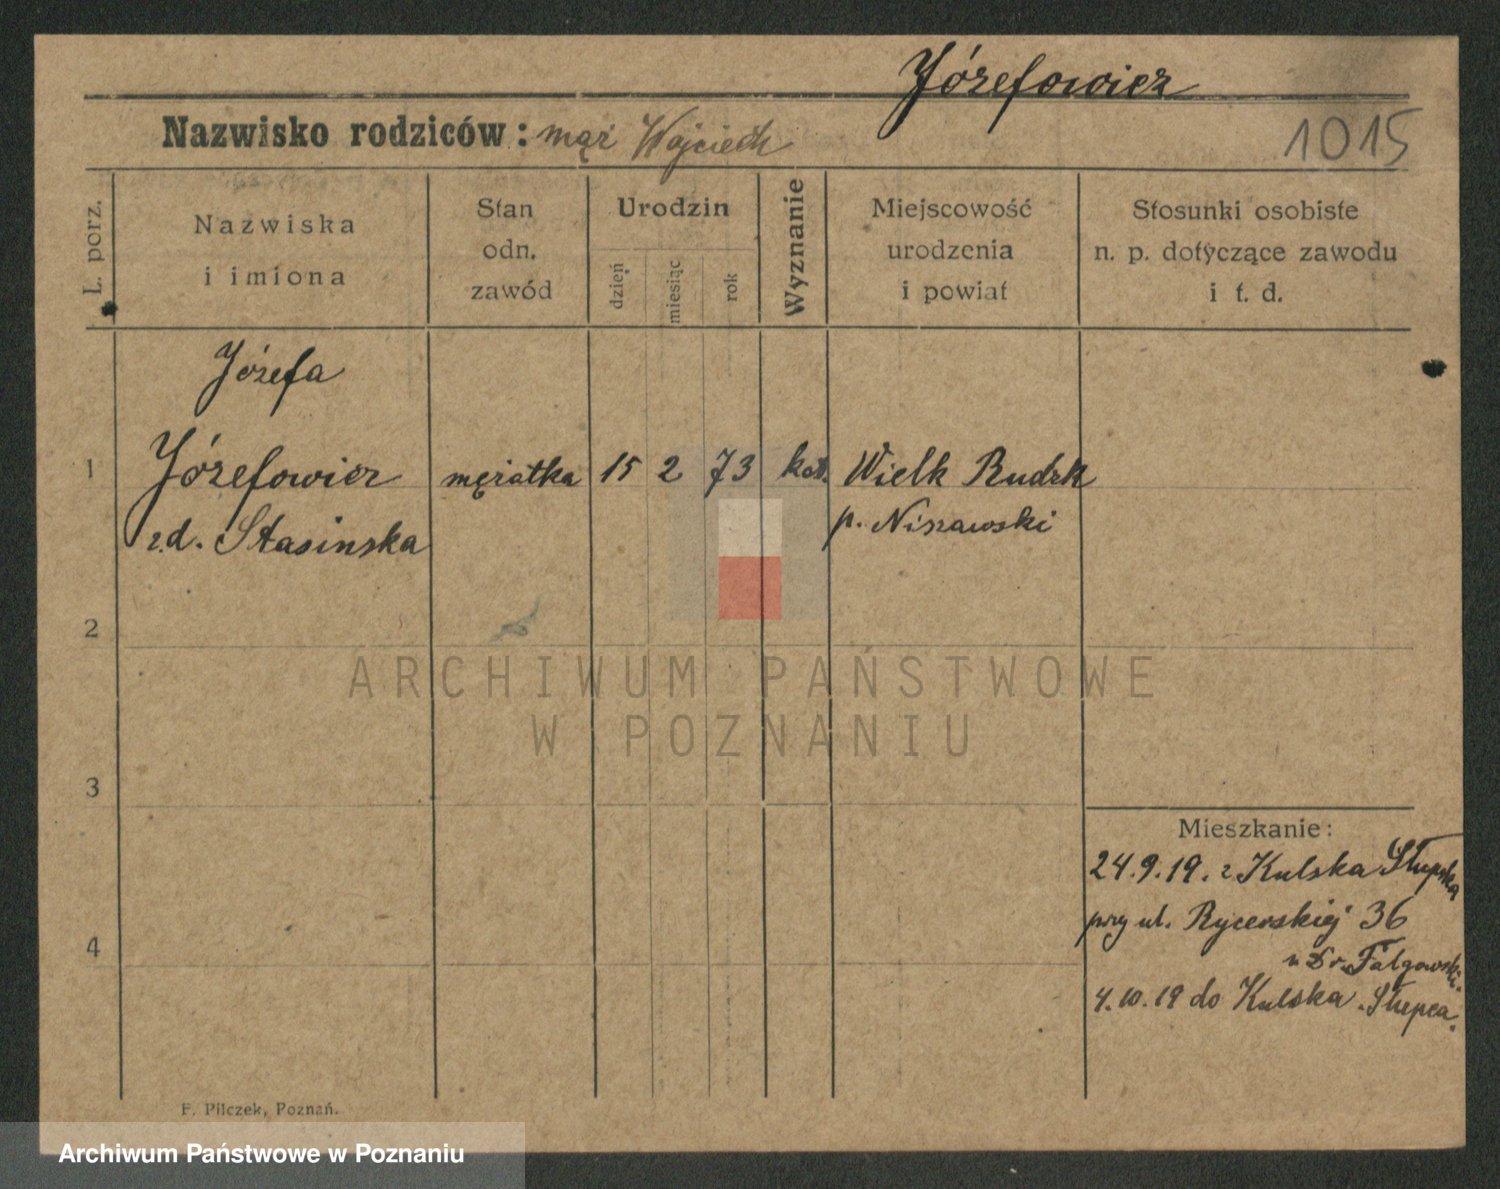 Józefowicz
Nazwisko rodziców: mąż Wojciech
1015
L. porz.
Nazwiska
i imiona
Stan
odn.
zawód
Urodzin
dzień
miesiąc
rok
Wyznanie
Miejscowość
urodzenia
i powiat
Stosunki osobiste
n. p. dotyczące zawodu
i t. d.
Józefa
1 Józefowicz mężatka 15 2 73 kat. Wielk Rudzk
z.d. Stasinska p. Niszawski
2
ARCHIWUM PAŃSTWOWE
W POZNANIU
3
Mieszkanie:
24.9.19. z Kulska Słupska
przy ul. Rycerskiej 36
4
u Dr. Fałgowski
4.10.19 do Kulska Słupca.
F. Pilczek, Poznań.
Archiwum Państwowe w Poznaniu